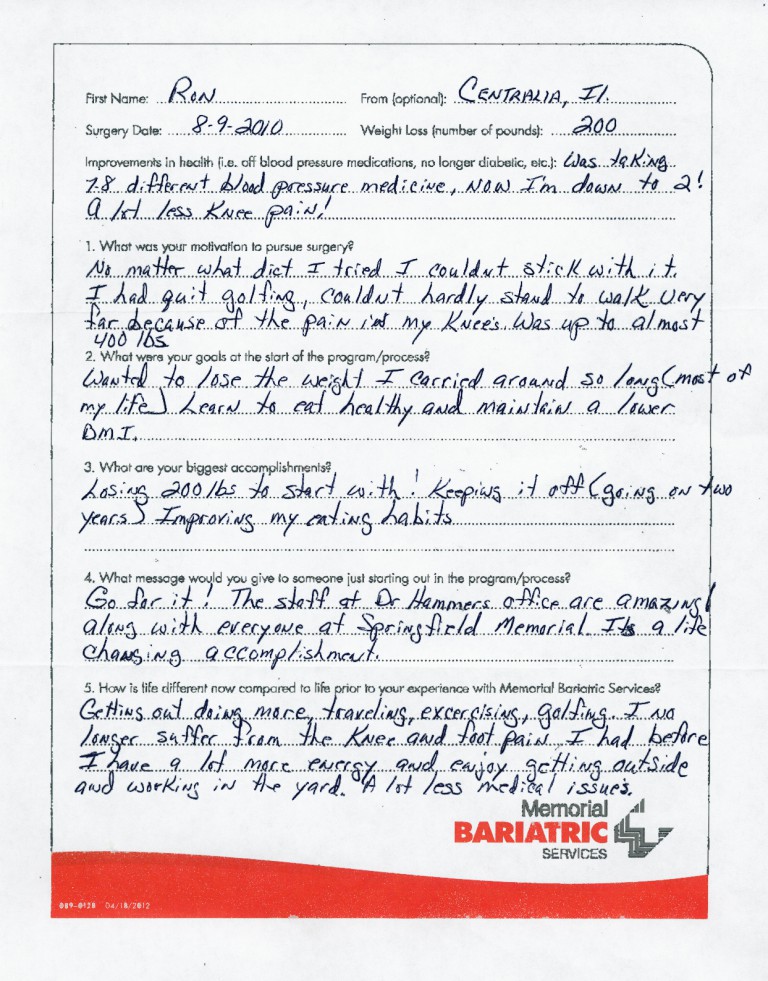 First Name: RON From (optional): CENTRALIA, Il.
Surgery Date: 8-9-2010 Weight Loss (number of pounds): 200
Improvements in health (i.e. off blood pressure medications, no longer diabetic, etc.): Was taking
7-8 different blood pressure medicine, NOW I'm down to 2!
A lot less Knee pain!
1. What was your motivation to pursue surgery?
No matter what diet I tried I couldnt stick with it.
I had quit golfing, couldnt hardly stand to walk very
far because of the pain in my Knee's. Was up to almost
400 lbs
2. What were your goals at the start of the program/process?
Wanted to lose the weight I carried around so long (most of
my life) Learn to eat healthy and maintain a lower
BMI.
3. What are your biggest accomplishments?
Losing 200 lbs to start with! Keeping it off (going on two
years) Improving my eating habits
4. What message would you give to someone just starting out in the program/process?
Go for it! The staff at Dr Hammers office are amazing!
along with everyone at Springfield Memorial. Its a life
changing accomplishment.
5. How is life different now compared to life prior to your experience with Memorial Bariatric Services?
Getting out doing more, traveling, excercising, golfing. I no
longer suffer from the Knee and foot pain I had before
I have a lot more energy and enjoy getting outside
and working in the yard. A lot less medical issues.
Memorial
BARIATRIC
SERVICES
089-0128 04/18/2012